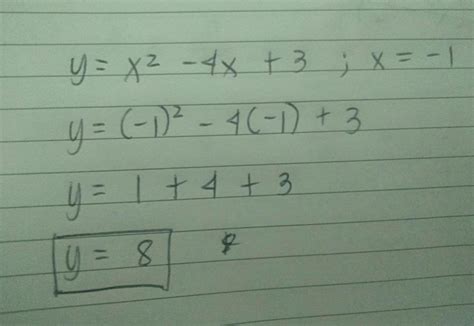 y = x² - 4x + 3 ; x = -1
y = (-1)² - 4(-1) + 3
y = 1 + 4 + 3
y = 8